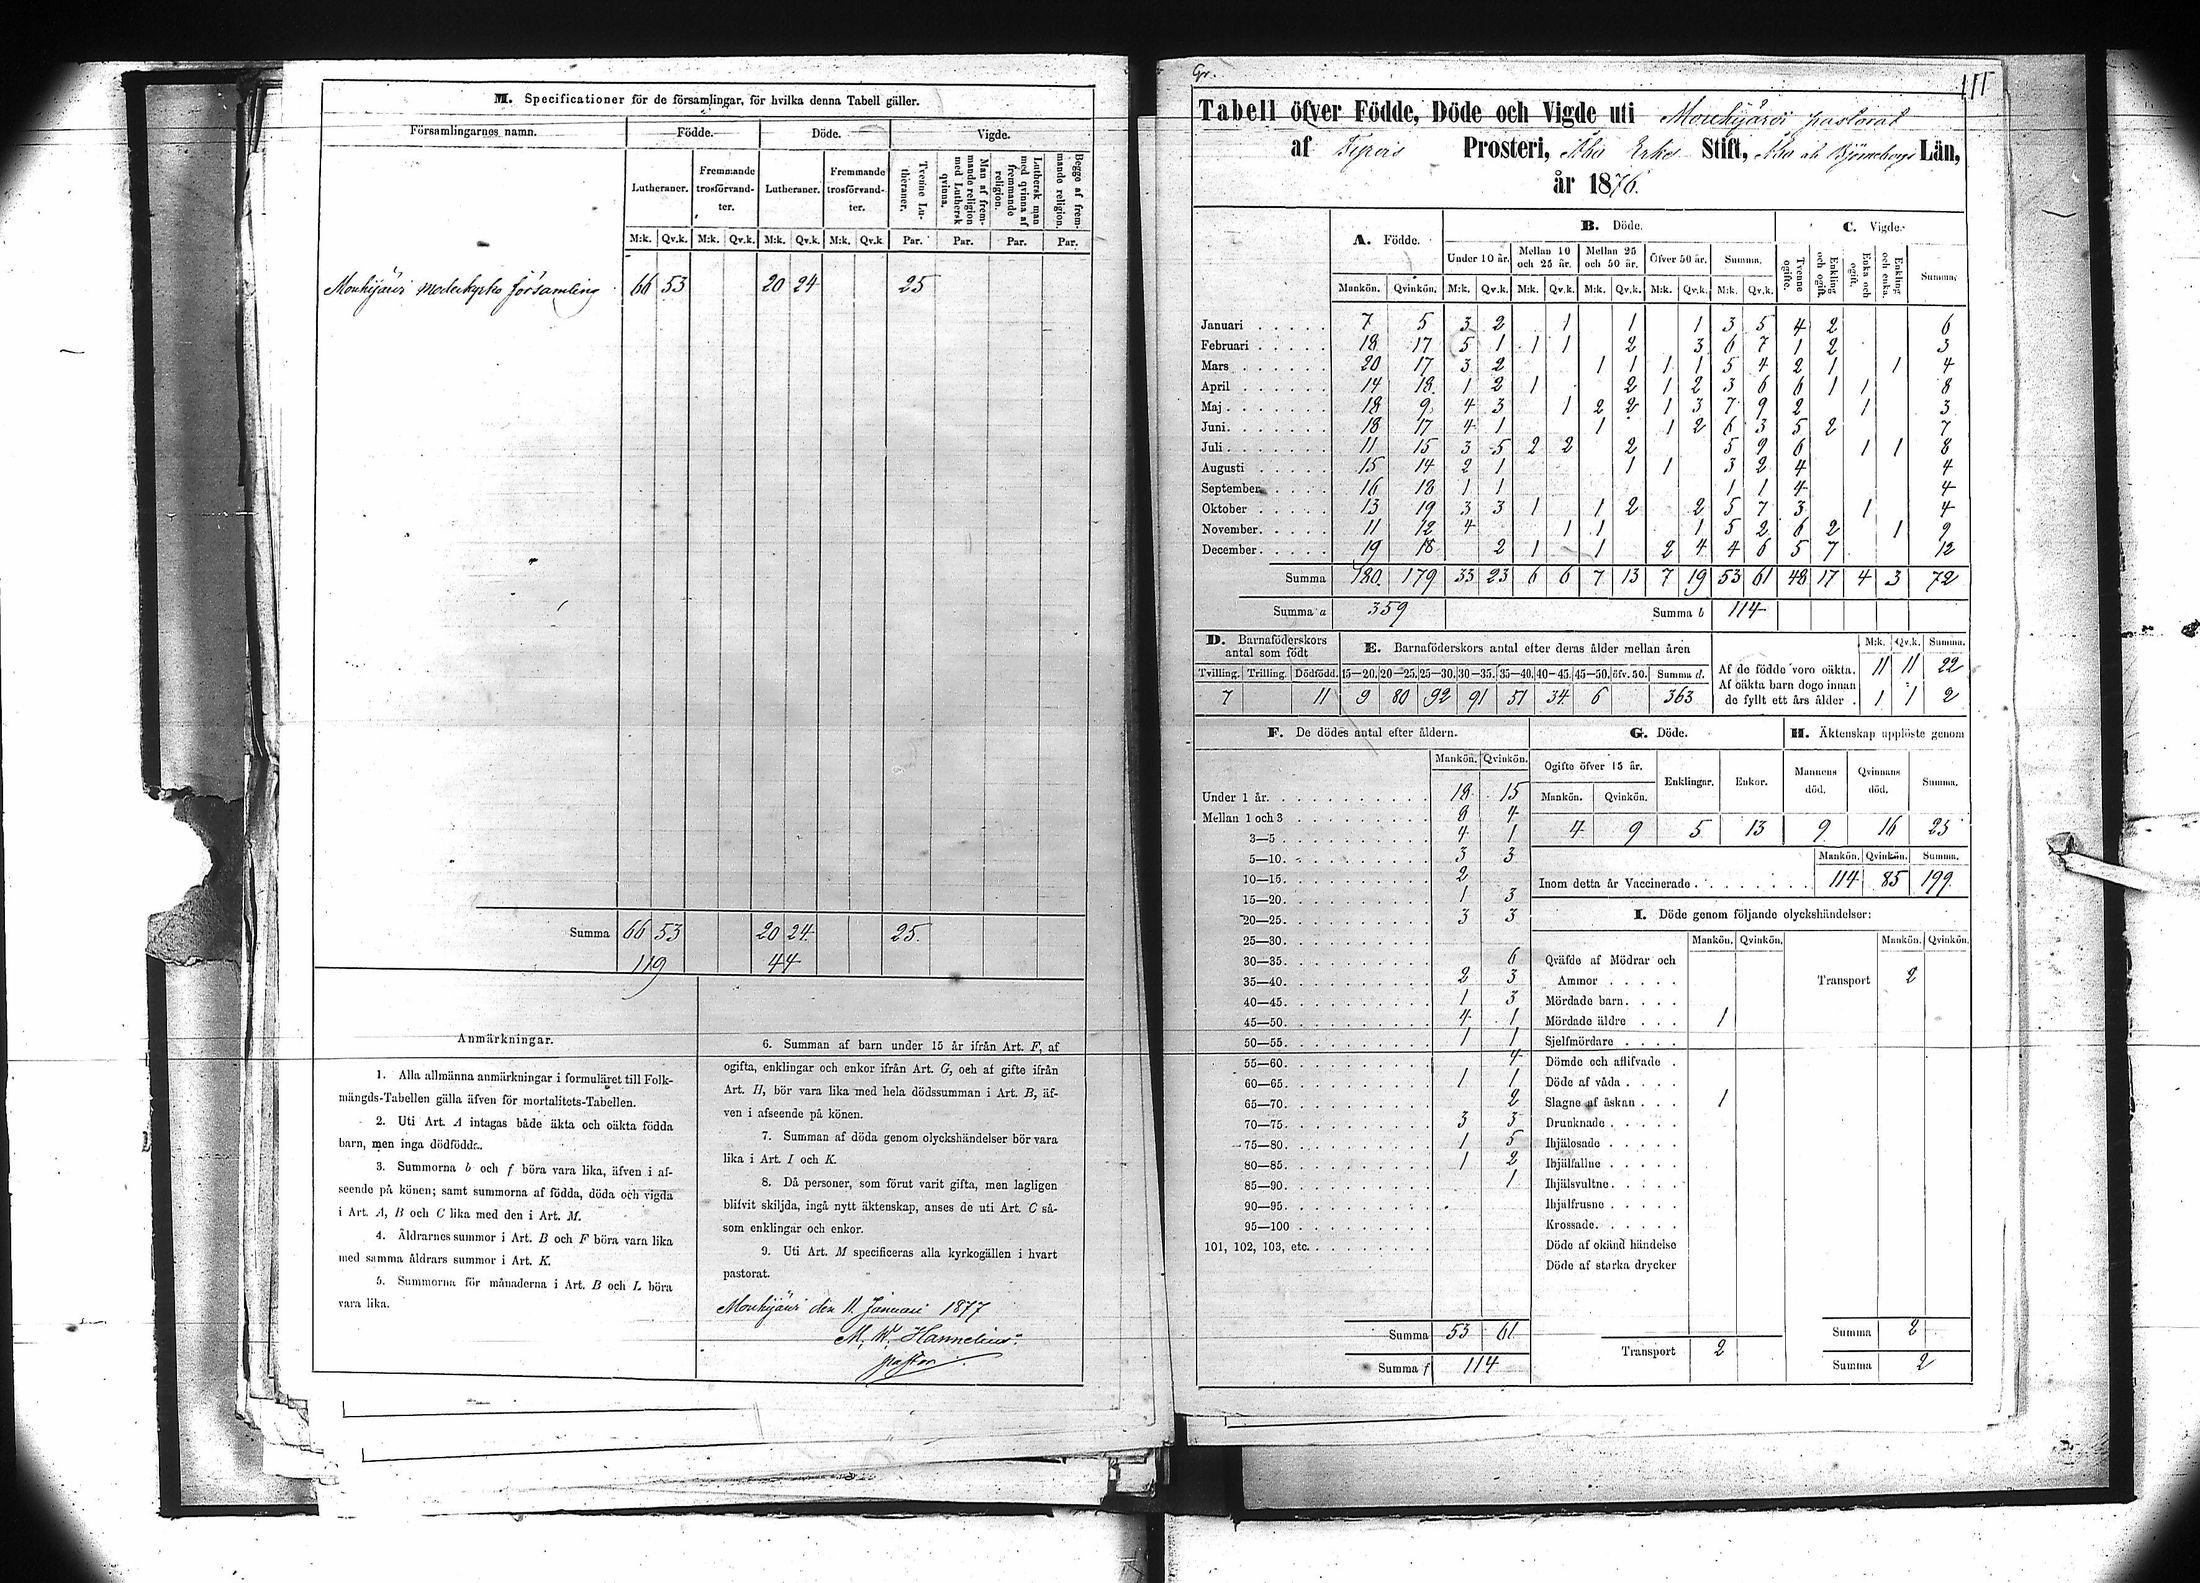 M. Specificationer för de församlingar, för hvilka denna Tabell gäller.
Församlingarnes namn. Födde. Döde. Vigde.
Lutheraner. Fremmande trosförvandter. Lutheraner. Fremmande trosförvandter. Tvenne Lutheraner. Man af fremmande religion med Luthersk qvinna. Luthersk man med qvinna af fremmande religion. Begge af fremmande religion.
M:k. Qv.k. M:k. Qv.k. M:k. Qv.k. M:k. Qv.k. Par. Par. Par. Par.
Mouhijärvi moderkyrko församling 66 53 20 24 25
Summa 66 53 20 24 25.
119 44
Anmärkningar.
1. Alla allmänna anmärkningar i formuläret till Folk-
mängds-Tabellen gälla äfven för mortalitets-Tabellen.
2. Uti Art. A intagas både äkta och oäkta födda
barn, men inga dödfödda.
3. Summorna b och f böra vara lika, äfven i af-
seende på könen; samt summorna af födda, döda och vigda
i Art. A, B och C lika med den i Art. M.
4. Åldrarnes summor i Art. B och F böra vara lika
med samma åldrars summor i Art. K.
5. Summorna för månaderna i Art. B och L böra
vara lika.
6. Summan af barn under 15 år ifrån Art. F, af
ogifta, enklingar och enkor ifrån Art. G, och af gifte ifrån
Art. H, bör vara lika med hela dödssumman i Art. B, äf-
ven i afseende på könen.
7. Summan af döda genom olyckshändelser bör vara
lika i Art. I och K.
8. Då personer, som förut varit gifta, men lagligen
blifvit skiljda, ingå nytt äktenskap, anses de uti Art. C så-
som enklingar och enkor.
9. Uti Art. M specificeras alla kyrkogällen i hvart
pastorat.
Mouhijärvi den 11 Januari 1877
M. W. Hannelius.
pastor.
Gr.
111
Tabell öfver Födde, Döde och Vigde uti Mouhijärvi pastorat
af Tyrvis Prosteri, Åbo Erke Stift, Åbo och Björneborgs Län,
år 1876.
A. Födde. B. Döde. C. Vigde.
Under 10 år. Mellan 10 och 25 år. Mellan 25 och 50 år. Öfver 50 år. Summa. Tvenne ogifte. Enkling och ogift. Enka och ogift. Enkling och enka. Summa.
Mankön. Qvinkön. M:k. Qv.k. M:k. Qv.k. M:k. Qv.k. M:k. Qv.k. M:k. Qv.k.
Januari 7 5 3 2 1 1 1 3 5 4 2 6
Februari 18 17 5 1 1 1 2 3 6 7 1 2 3
Mars 20 17 3 2 1 1 1 1 5 4 2 1 1 4
April 14 18 1 2 1 2 1 2 3 6 6 1 1 8
Maj 18 9 4 3 1 2 2 1 3 7 9 2 1 3
Juni 18 17 4 1 1 1 2 6 3 5 2 7
Juli 11 15 3 5 2 2 2 5 9 6 1 1 8
Augusti 15 14 2 1 1 1 3 2 4 4
September 16 18 1 1 1 1 4 4
Oktober 13 19 3 3 1 1 2 2 5 7 3 1 4
November 11 12 4 1 1 1 5 2 6 2 1 9
December 19 18 2 1 1 2 4 4 6 5 7 12
Summa 180 179 33 23 6 6 7 13 7 19 53 61 48 17 4 3 72
Summa a 359 Summa b 114
D. Barnaföderskors antal som födt
Tvilling. Trilling. Dödfödd.
7 11
E. Barnaföderskors antal efter deras ålder mellan åren
15—20. 20—25. 25—30. 30—35. 35—40. 40—45. 45—50. öfv. 50. Summa d.
9 80 92 91 51 34 6 363
M:k. Qv.k. Summa.
Af de födde voro oäkta. 11 11 22
Af oäkta barn dogo innan
de fyllt ett års ålder. 1 1 2
F. De dödes antal efter åldern.
Mankön. Qvinkön.
Under 1 år. 18 15
Mellan 1 och 3 8 4
3—5 4 1
5—10 3 3
10—15 2
15—20 1 3
20—25 3 3
25—30
30—35 6
35—40 2 3
40—45 1 3
45—50 4 1
50—55 1 1
55—60 4
60—65 1 1
65—70 2
70—75 3 3
75—80 1 5
80—85 1 2
85—90 1
90—95
95—100
101, 102, 103, etc.
Summa 53 61
Summa f 114
G. Döde.
Ogifte öfver 15 år. Enklingar. Enkor.
Mankön. Qvinkön.
4 9 5 13
H. Äktenskap upplöste genom
Mannens död. Qvinnans död. Summa.
9 16 25
Mankön. Qvinkön. Summa.
Inom detta år Vaccinerade 114 85 199
I. Döde genom följande olyckshändelser:
Mankön. Qvinkön. Mankön. Qvinkön.
Qväfde af Mödrar och
Ammor
Transport 2
Mördade barn
Mördade äldre 1
Sjelfmördare
Dömde och aflifvade
Döde af våda
Slagne af åskan 1
Drunknade
Ihjälosade
Ihjälfallne
Ihjälsvultne
Ihjälfrusne
Krossade
Döde af okänd händelse
Döde af starka drycker
Transport 2
Summa 2
Summa 2